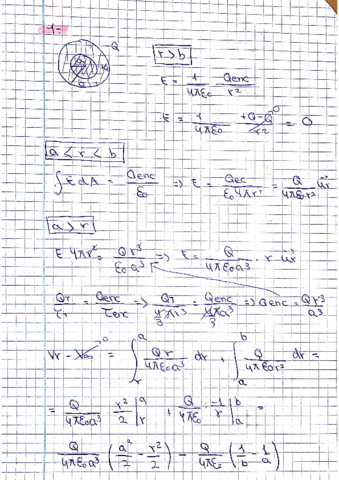 1.-
-Q
r > b
E = 1/4πε0 Qenc/r²
E = 1/4πε0 +Q-Q/r² = 0
a < r < b
∫ E dA = Qenc/ε0 => E = Qec/ε0 4πr² = Q/4πε0r² ur
a > r
E 4πr² = Qr³/ε0 a³ => E = Q/4πε0a³ · r ur
Qr/τr = Qenc/τenc => Qr/4/3πr³ = Qenc/4/3πa³ => Qenc = Qr³/a³
Vr - V∞ = ∫ra Qr/4πε0a³ dr + ∫ab Q/4πε0r² dr =
= Q/4πε0a³ r²/2 |ra + Q/4πε0 · -1/r |ab =
Q/4πε0a³ (a²/2 - r²/2) - Q/4πε0 (1/b - 1/a)